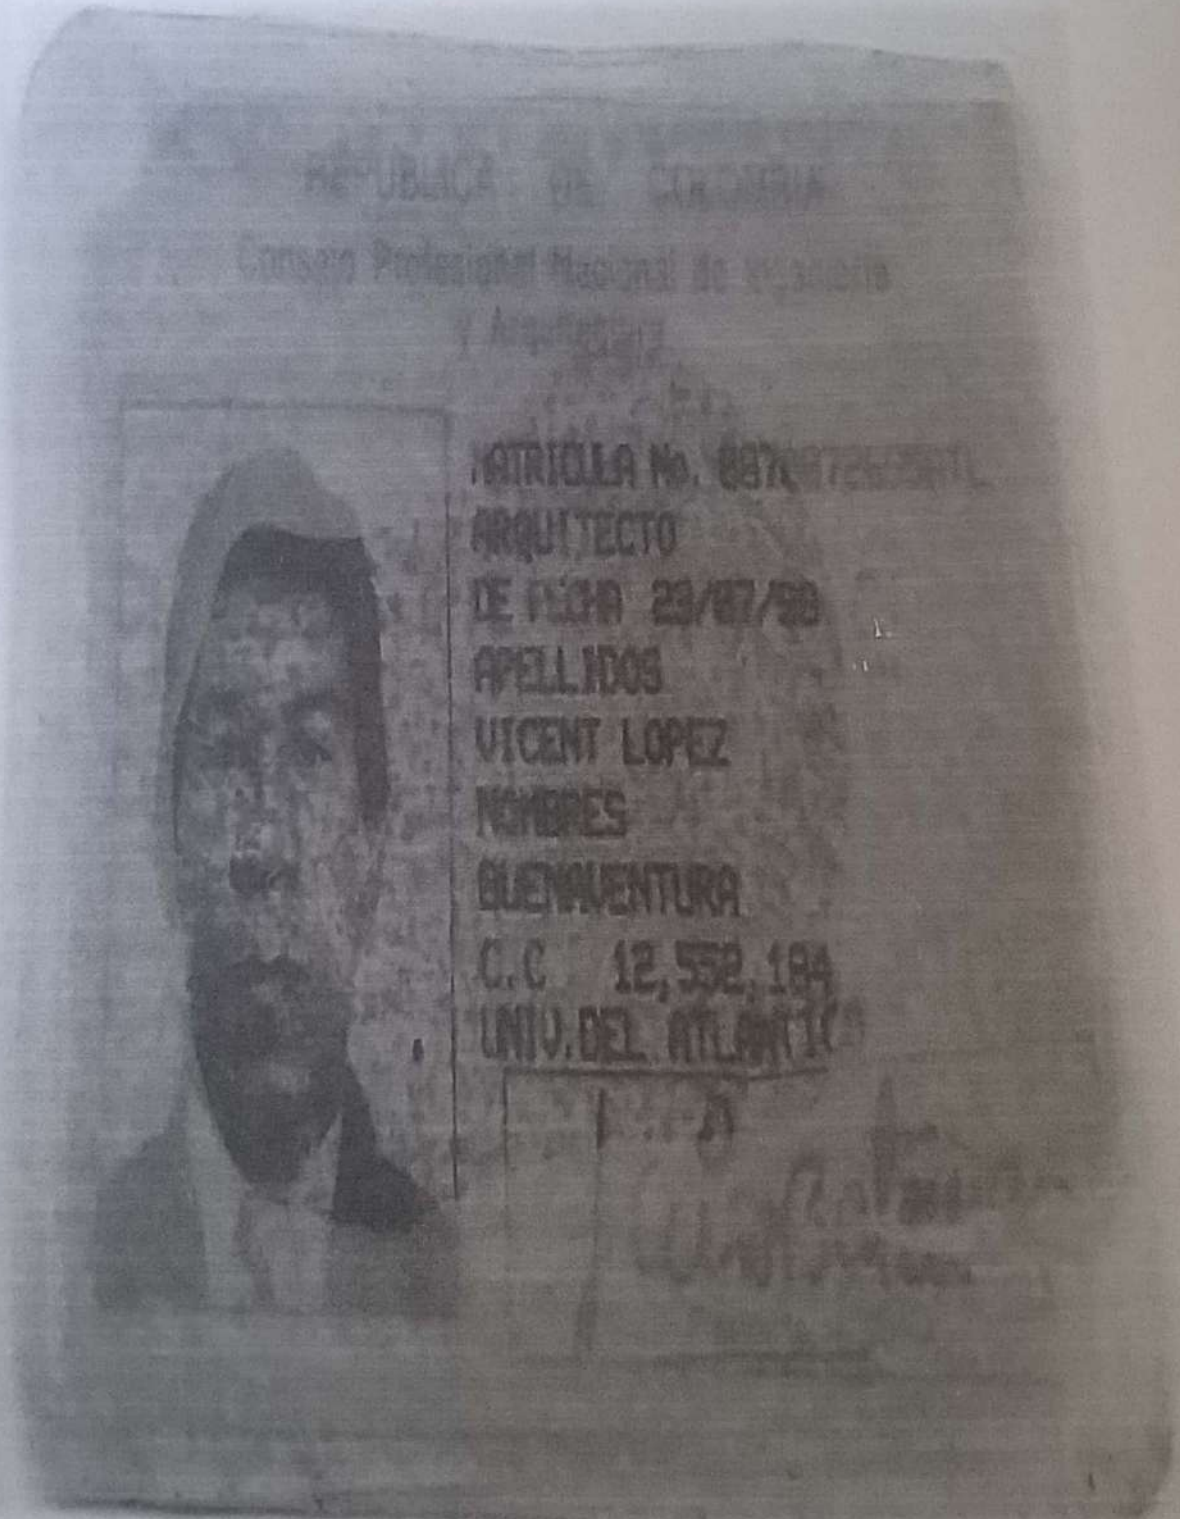 REPUBLICA DE COLOMBIA
Consejo Profesional Nacional de Ingenieria
y Arquitectura
MATRICULA No.
ARQUITECTO
DE FECHA
APELLIDOS
VICENT LOPEZ
NOMBRES
BUENAVENTURA
C.C 12,552,184
UNIV.DEL ATLANTICO